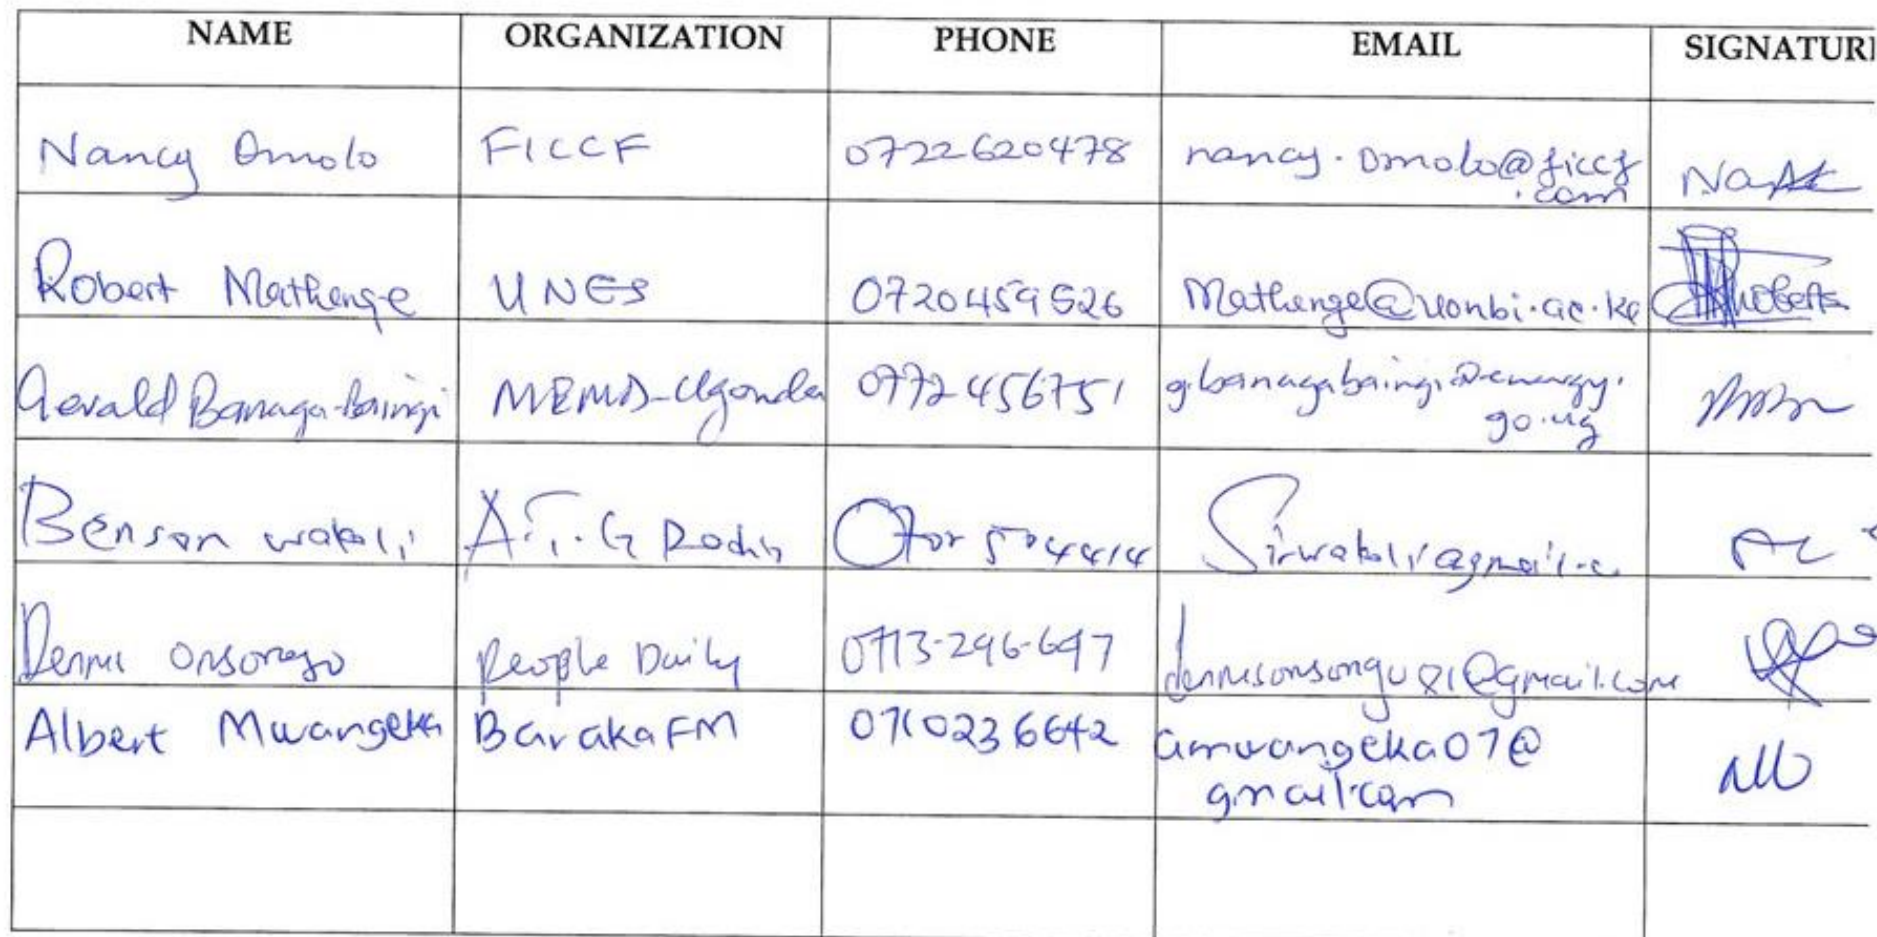 NAME ORGANIZATION PHONE EMAIL SIGNATUR
Nancy Omolo FICCF 0722620478 nancy.omolo@ficcf
.com
Robert Mathenge UNES 0720459526 Mathenge@uonbi.ac.ke
Gerald Banaga-Baingi MEMD-Uganda 0772456751 g.banagabaingi@energy.
go.ug
Benson wakoli A.T.G Sirwakoli@gmail.c
Dennis Onsongo People Daily 0713-296-647 dennisonsongo81@gmail.com
Albert Mwangeka Baraka FM 0710236642 amwangeka07@
gmail.com